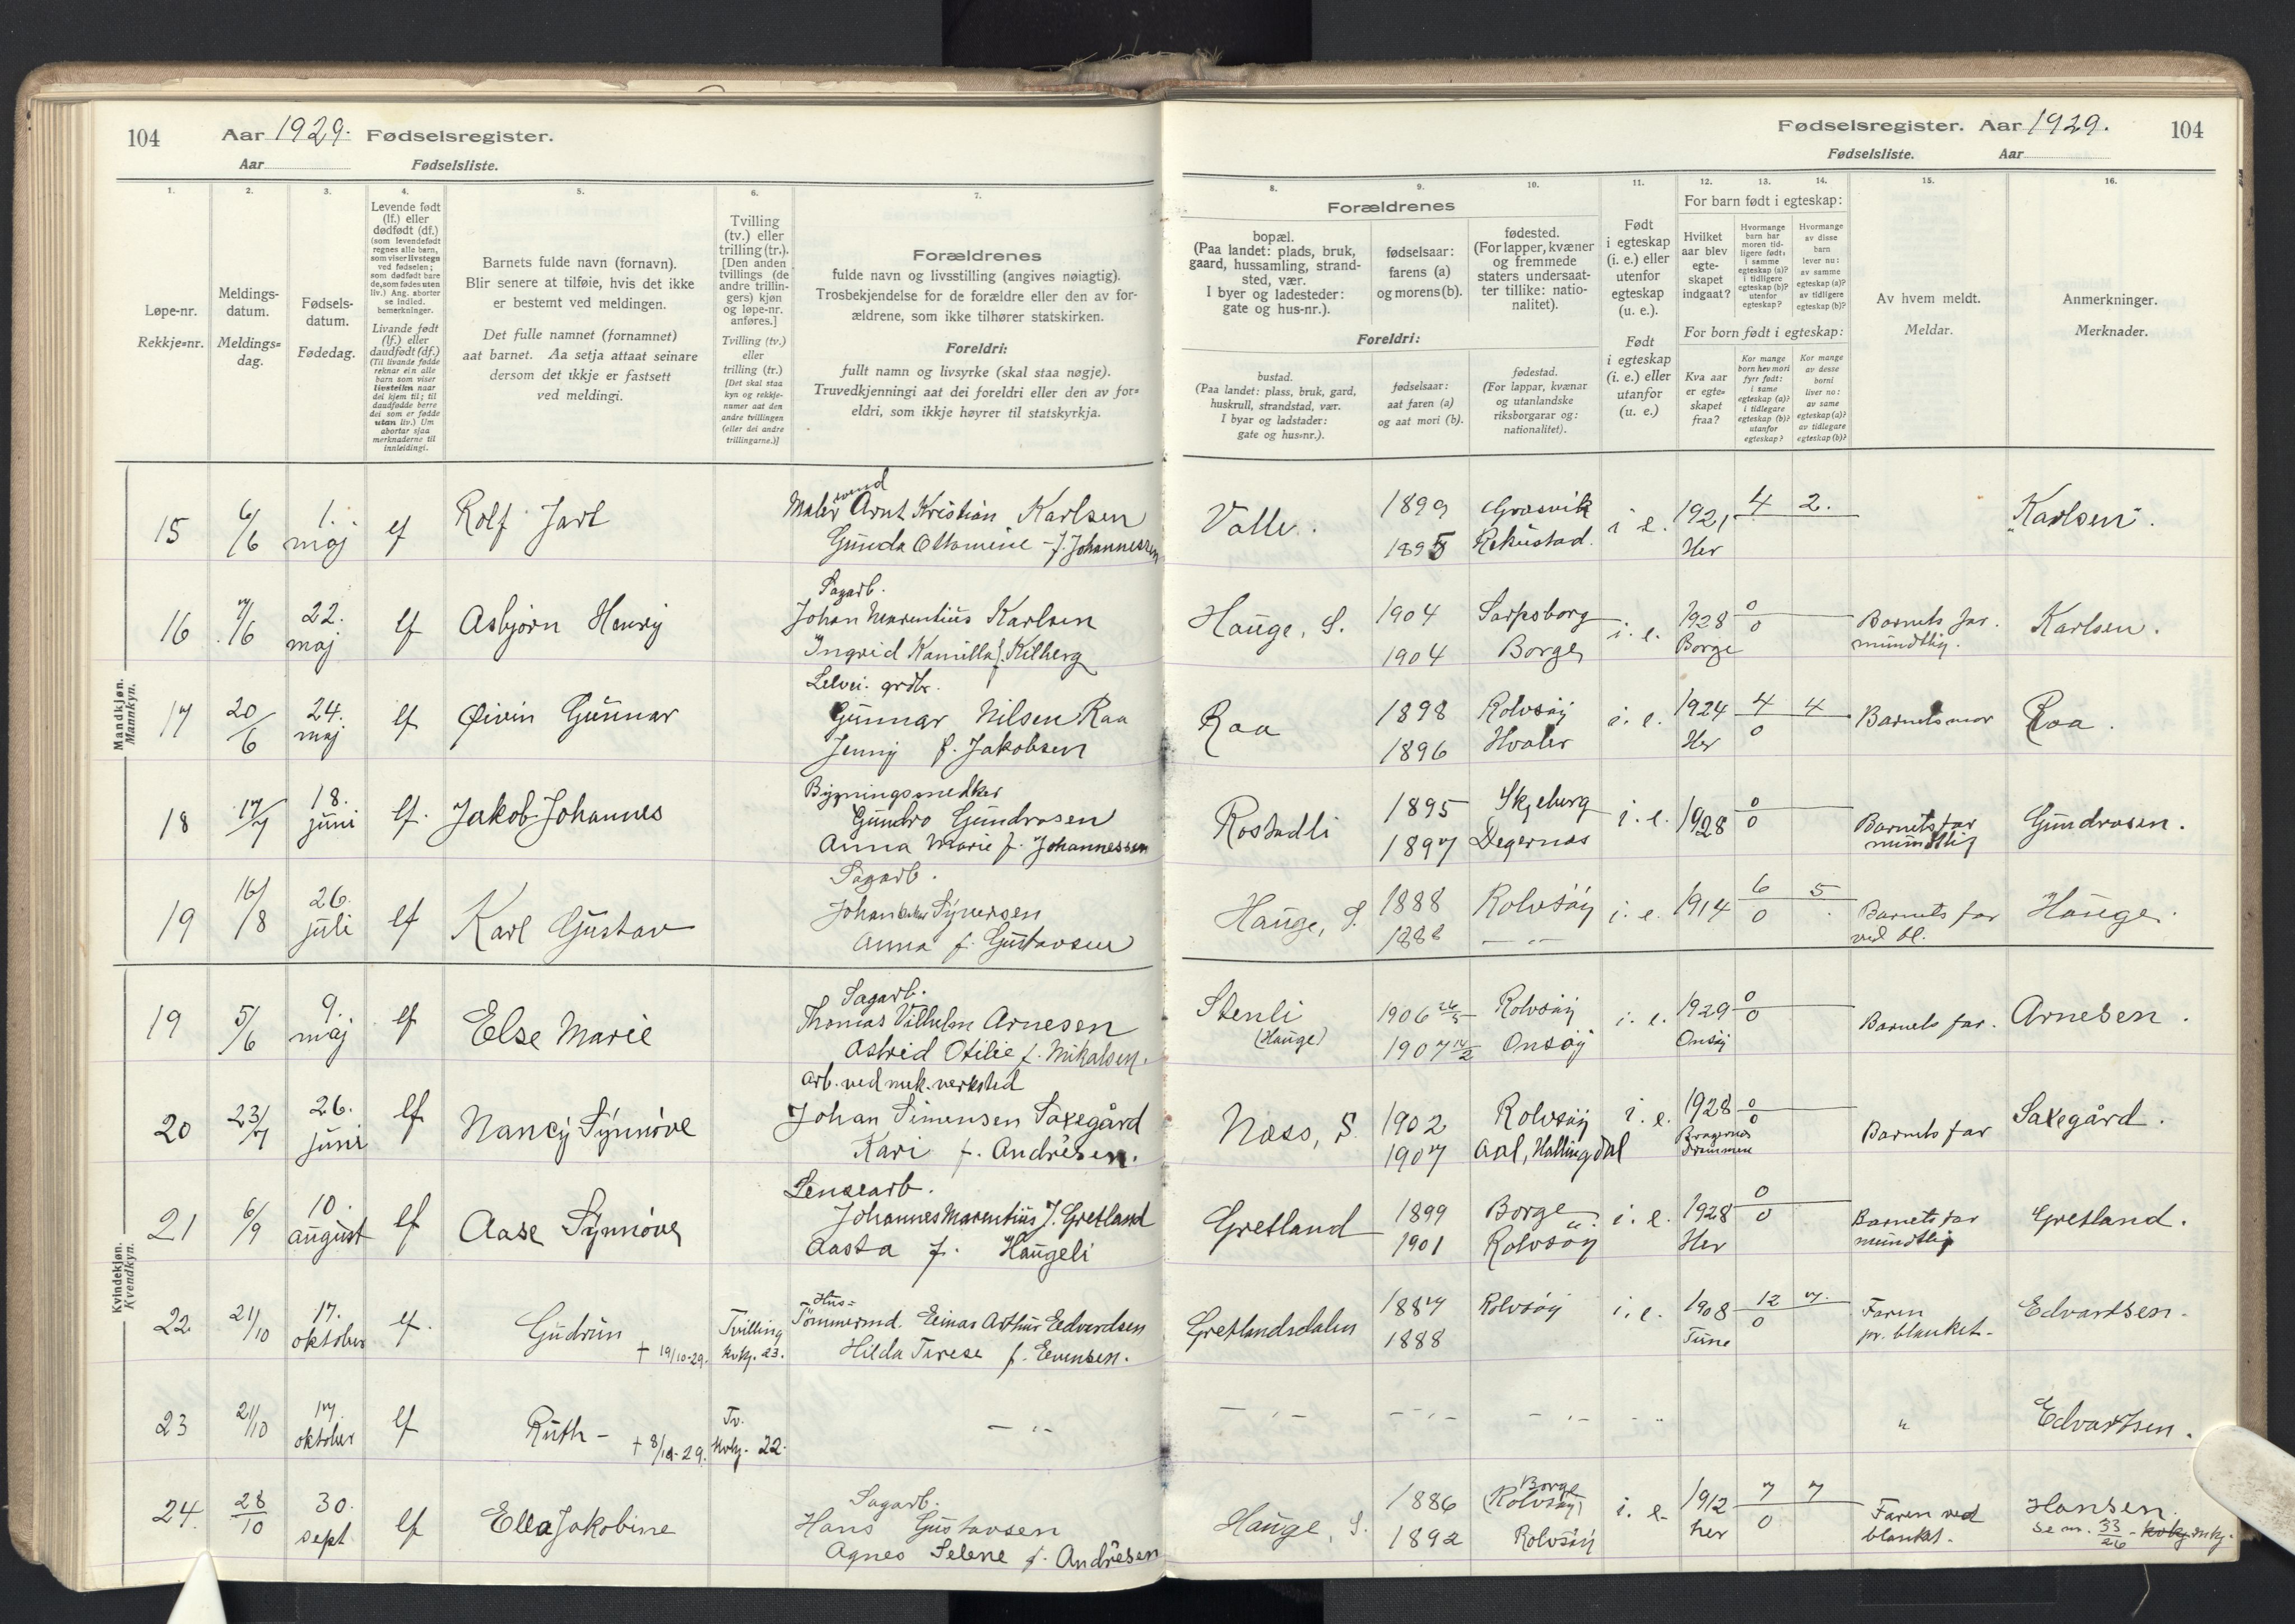 104 Aar 1929. Fødselsregister.
Aar Fødselsliste.
1. 2. 3. 4. 5. 6. 7.
Løpe-nr.
Rekkje-nr.
Meldings-
datum.
Meldings-
dag.
Fødsels-
datum.
Fødedag.
Levende født
(lf.) eller
dødfødt (df.)
(som levendefødt
regnes alle barn,
som viser livstegn
ved fødselen;
som dødfødt bare
de, som fødes uten
liv.) Ang. aborter
se indled.
bemerkninger.
Livande født
(lf.) eller
daudfødt (df.)
(Til livande fødde
reknar ein alle
barn som viser
livsteikn naar
dei kjem til; til
daudfødde berre
dei som er fødde
utan liv.) Um
abortar sjaa
merknaderne til
innleidingi.
Barnets fulde navn (fornavn).
Blir senere at tilføie, hvis det ikke
er bestemt ved meldingen.
Det fulle namnet (fornamnet)
aat barnet. Aa setja attaat seinare
dersom det ikkje er fastsett
ved meldingi.
Tvilling
(tv.) eller
trilling (tr.).
[Den anden
tvillings (de
andre trillin-
gers) kjøn
og løpe-nr.
anføres.]
Tvilling (tv.)
eller
trilling (tr.)
[Det skal staa
kyn og rekkje-
numer aat den
andre tvillingen
(eller dei andre
trillingarne.)]
Forældrenes
fulde navn og livsstilling (angives nøiagtig).
Trosbekjendelse for de forældre eller den av for-
ældrene, som ikke tilhører statskirken.
Foreldri:
fullt namn og livsyrke (skal staa nøgje).
Truvedkjenningi aat dei foreldri eller den av for-
eldri, som ikkje høyrer til statskyrkja.
Mandkjøn.
Mannkyn.
15 6/6 1. maj lf Rolf Jarl
Maler Arnt Kristian Karlsen
Gunda Ottomine f. Johannessen
16 7/6 22. maj lf Asbjørn Henry
Sagarb.
Johan Marentius Karlsen
Ingrid Kamilla f. Kilberg
17 20/6 24. maj lf Øivin Gunnar
Selvei. grdbr.
Gunnar Nilsen Raa
Jenny f. Jakobsen
18 17/7 18. juni lf. Jakob Johannes
Bygningssnedker
Gundro Gundrosen
Anna Marie f. Johannessen
19 16/8 26. juli lf Karl Gustav
Sagarb.
Johan Syversen
Anna f. Gustavsen
Kvindekjøn.
Kvendkyn.
19 5/6 9. maj lf Else Marie
Sagarb.
Thomas Vilhelm Arnesen
Astrid Otilie f. Mikalsen.
20 23/7 26. juni lf Nancy Synnöve
Arb. ved mek. verksted
Johan Simensen Saxegård
Kari f. Andrésen.
21 6/9 10. august lf Aase Synnöve
Lensearb.
Johannes Marentius J. Gretland
Aasta f. Haugeli
22 21/10 17. oktober lf. Gudrun
† 19/10-29. Tvilling kvkj. 23.
Hus-
Tömmermd. Einar Arthur Edvardsen
Hilda Terese f. Evensen.
23 21/10 17. oktober lf Ruth -
† 8/11-29. Tv. kvkj. 22.
— „ —
24. 28/10 30. sept lf Ella Jakobine
Sagarb.
Hans Gustavsen
Agnes Selene f. Andrésen
Fødselsregister. Aar 1929. 104
Fødselsliste. Aar
8. 9. 10. 11. 12. 13. 14. 15. 16.
Forældrenes
bopæl.
(Paa landet: plads, bruk,
gaard, hussamling, strand-
sted, vær.
I byer og ladesteder:
gate og hus-nr.).
fødselsaar:
farens (a)
og morens (b).
fødested.
(For lapper, kvæner
og fremmede
staters undersaat-
ter tillike: natio-
nalitet).
Foreldri:
bustad.
(Paa landet: plass, bruk, gard,
huskrull, strandstad, vær.
I byar og ladstader:
gate og hus-nr.).
fødselsaar:
aat faren (a)
og aat mori (b).
fødestad.
(For lappar, kvænar
og utanlandske
riksborgarar og:
nationalitet).
Født
i egteskap
(i. e.) eller
utenfor
egteskap
(u. e.).
Født
i egteskap
(i. e.) eller
utanfor
egteskap
(u. e.)
For barn født i egteskap:
Hvilket
aar blev
egte-
skapet
indgaat?
Hvormange
barn har
moren tid-
ligere født:
i samme
egteskap (a)?
i tidligere
egteskap (b)?
utenfor
egteskap?
Hvormange
av disse
barn
lever nu:
av samme
egteskap (a)?
av tidligere
egteskap (b)?
For born født i egteskap:
Kva aar
er egte-
skapet
fraa?
Kor mange
born hev mori
fyrr født:
i same
egteskap (a)?
i tidlegare
egteskap (b)?
utanfor
egteskap?
Kor mange
av desse
borni
liver no:
av same
egteskap (a)?
av tidlegare
egteskap (b)?
Av hvem meldt.
Meldar.
Anmerkninger.
Merknader.
Valle. 1899 Grasvik i e. 1921 4 2. „Karlsen“.
1895 Rekustad. Her
Hauge, S. 1904 Sarpsborg i. e. 1928 0 Barnets far. Karlsen.
1904 Borge Borge 0 mundtlig.
Raa 1898 Rolvsöy i. e. 1924 4 4 Barnets mor Raa.
1896 Hvaler Her 0
Rostadli 1895 Skjeberg i. e. 1928 0 Barnets far Gundrosen.
1897 Degernes 0 mundtlig
Hauge, S. 1888 Rolvsöy i. e. 1914 6 5 Barnets far Hauge.
1888 — „ — 0 ved bl.
Stenli 1906 26/5 Rolvsöy i. e. 1929 0 Barnets far. Arnesen.
(Hauge) 1907 14/2 Onsöy Onsöy 0
Næss, S 1902 Rolvsöy i. e. 1928 0 Barnets far Saxegård.
1907 Aal, Hallingdal Bragernes Drammen 0
Gretland 1899 Borge i. e. 1928 0 Barnets far Gretland.
1901 Rolvsöy Her 0 mundtlig
Gretlandsdalen 1887 Rolvsöy i. e. 1908 12 7. Faren Edvartsen.
1888 Tune 0 pr. blanket.
— „ — — „ — — „ — - „ „ Edvartsen.
Hauge, S. 1886 Borge (Rolvsöy) i. e. 1912 7 7 Faren ved Hansen.
1892 Rolvsöy her 0 blanket. Se nr. 33/26 - kvkj. mkj.